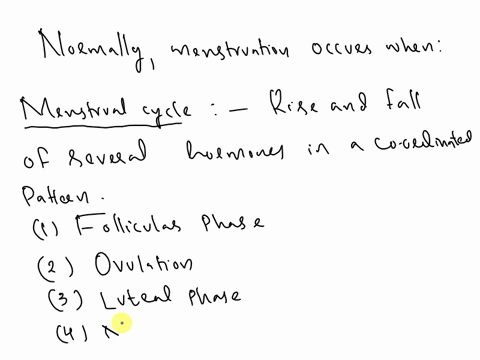 Normally, menstruation occurs when:
Menstrual cycle : — Rise and fall
of several hormones in a coordinated
Pattern.
(1) Follicular Phase
(2) Ovulation
(3) Luteal Phase
(4)